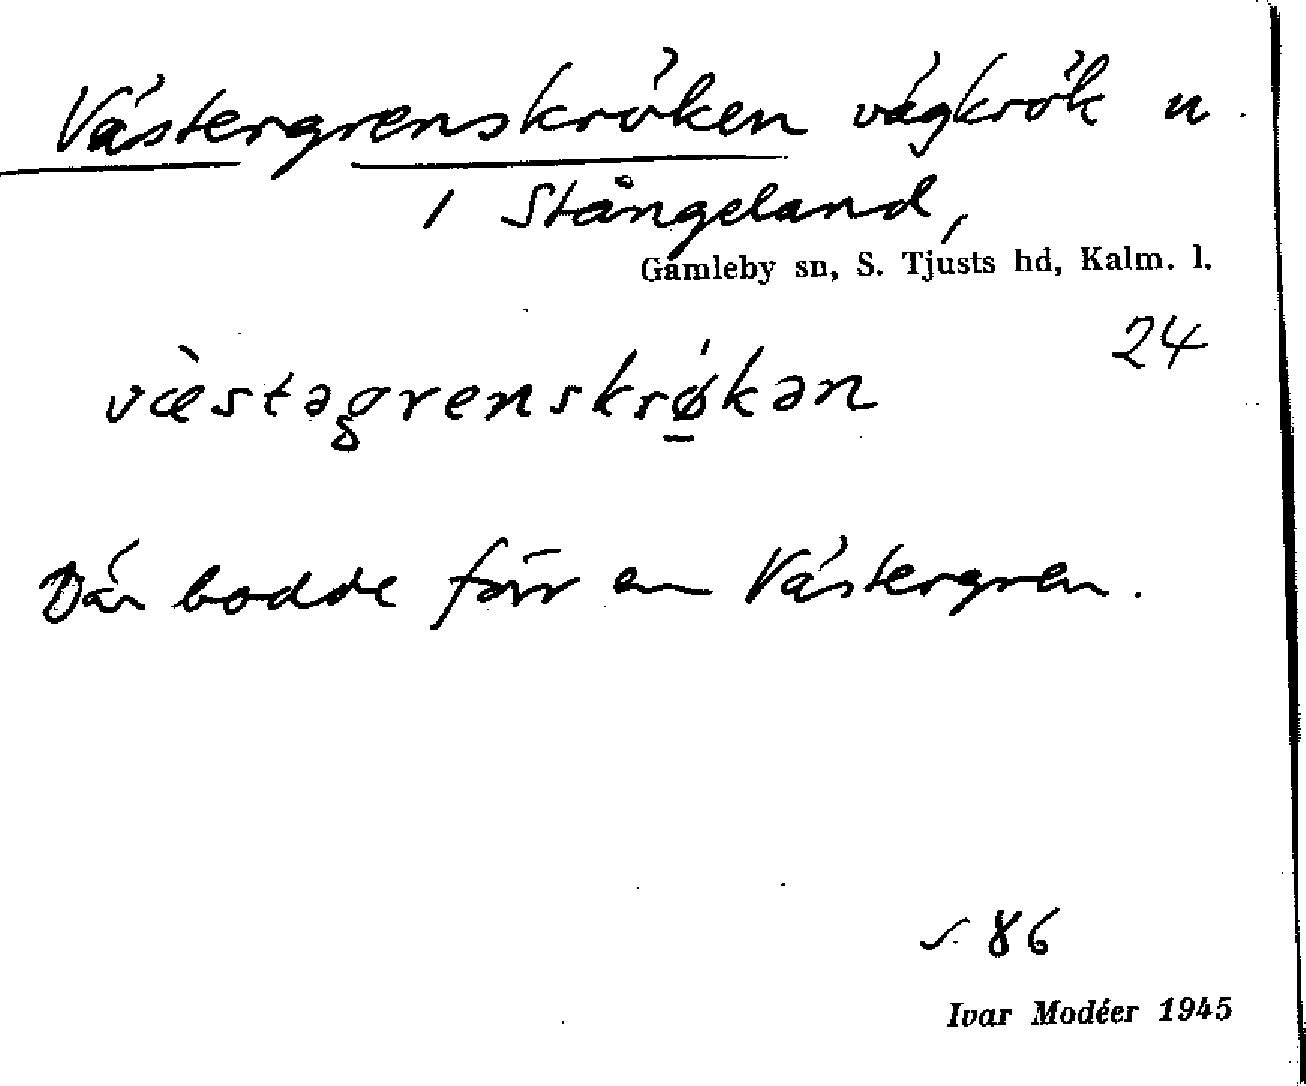 Västergrenskröken vägkrök n.
i Stångeland,
Gamleby sn, S. Tjusts hd, Kalm. l.
24
væ̀stəgrenskrǿ̱kən
Där bodde förr en Västergren.
s. 86
Ivar Modéer 1945